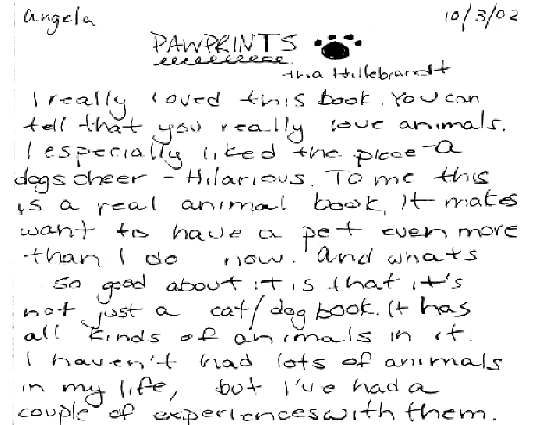 Angela 10/3/02
PAWPRINTS
tina Hillebrandt
I really loved this book. You can
tell that you really love animals.
I especially liked the piece - A
dogs cheer - Hilarious. To me this
is a real animal book, It makes
want to have a pet even more
than I do now. And whats
so good about it is that it's
not just a cat/dog book. It has
all kinds of animals in it.
I haven't had lots of animals
in my life, but I've had a
couple of experiences with them.